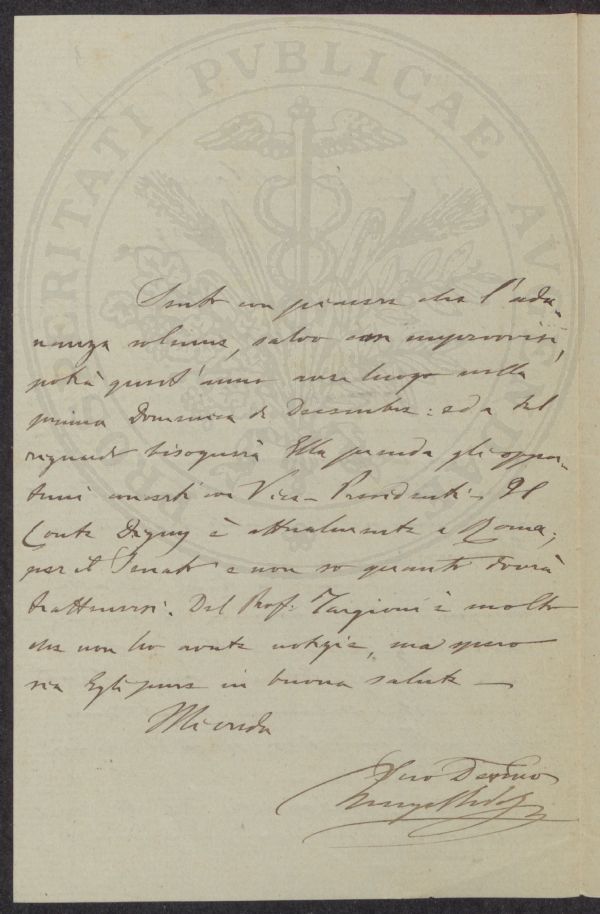 PROSPERITATI PVBLICAE AVGENDAE
Sento con piacere che l'adu-
nanza solenne, salvo casi improvvisi,
potrà quest'anno aver luogo nella
prima Domenica di Decembre: ed a tal
riguardo bisognerà Ella prenda gli oppor-
tuni concerti coi Vice-Presidenti. Il
Conte Digny è attualmente a Roma,
per il Senato e non so quanto dovrà
trattenersi. Del Prof. Targioni è molto
che non ho avute notizie, ma spero
sia Egli pure in buona salute —
Mi creda
Suo Devmo